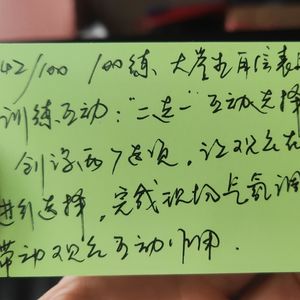 42/100 100练、大学生自信表
训练互动:"二选一"互动选择
创设两个选项,让观众在
进行选择,完成现场气氛调
带动观众互动作用.